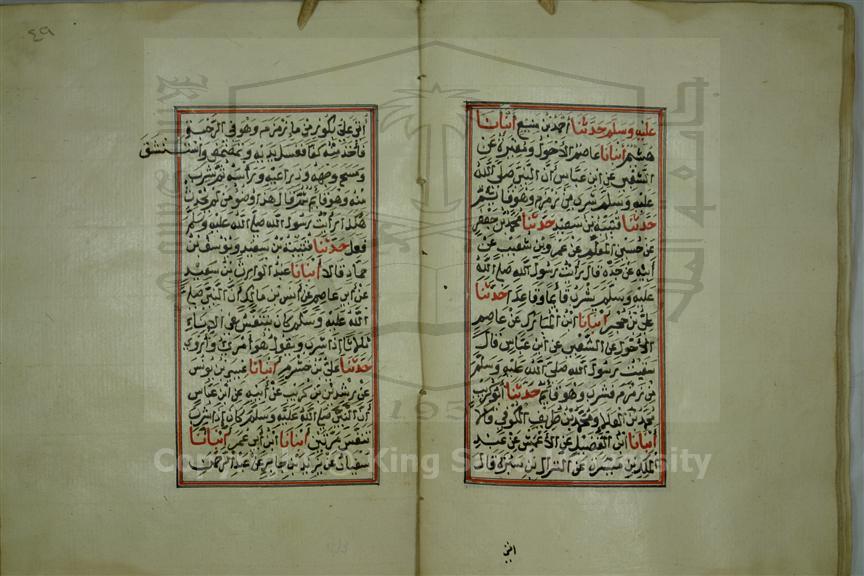 عليه وسلم حدثنا احمد بن منيع انبانا
هشيم انبانا عاصم الاحول ومغيرة عن
الشعبي عن ابن عباس أن النبي صلى الله
عليه وسلم شرب من زمزم وهو قائم
حدثنا قتيبة بن سعيد حدثنا محمد بن جعفر
عن حسين المعلم عن عمرو بن شعيب عن
أبيه عن جده قال رأيت رسول الله صلى الله
عليه وسلم يشرب قائما وقاعدا حدثنا
علي بن حجر انبانا ابن المبارك عن عاصم
الاحول عن الشعبي عن ابن عباس قال
سقيت رسول الله صلى الله عليه وسلم
من زمزم فشرب وهو قائم حدثنا ابو كريب
محمد بن العلاء ومحمد بن طريف الكوفي قالا
أنبانا ابن الفضيل عن الأعمش عن عبد
الملك بن ميسرة عن النزال بن سبرة قال
اتي
٤٩
أتي علي بكوز من ماء زمزم وهو في الرحبة
فأخذ منه كفا فغسل يديه ومضمض واستنشق
ومسح وجهه وذراعيه ورأسه ثم شرب
منه وهو قائم ثم قال هذا وضوء من لم يحدث
هكذا رأيت رسول الله صلى الله عليه وسلم
فعل حدثنا قتيبة بن سعيد ويوسف بن
حماد قالا أنبانا عبد الوارث بن سعيد
عن ابي عاصم عن أنس بن مالك أن النبي صلى
الله عليه وسلم كان يتنفس في الإناء
ثلاثا إذا شرب ويقول هو أمرئ وأروى
حدثنا علي بن خشرم انبانا عيسى بن يونس
عن رشدين بن كريب عن أبيه عن ابن عباس
أن النبي صلى الله عليه وسلم كان إذا شرب
تنفس مرتين انبانا ابن أبي عمر انبانا
سفيان عن يزيد بن جابر عن عبد الرحمن
Copyright © King Saud University
1957